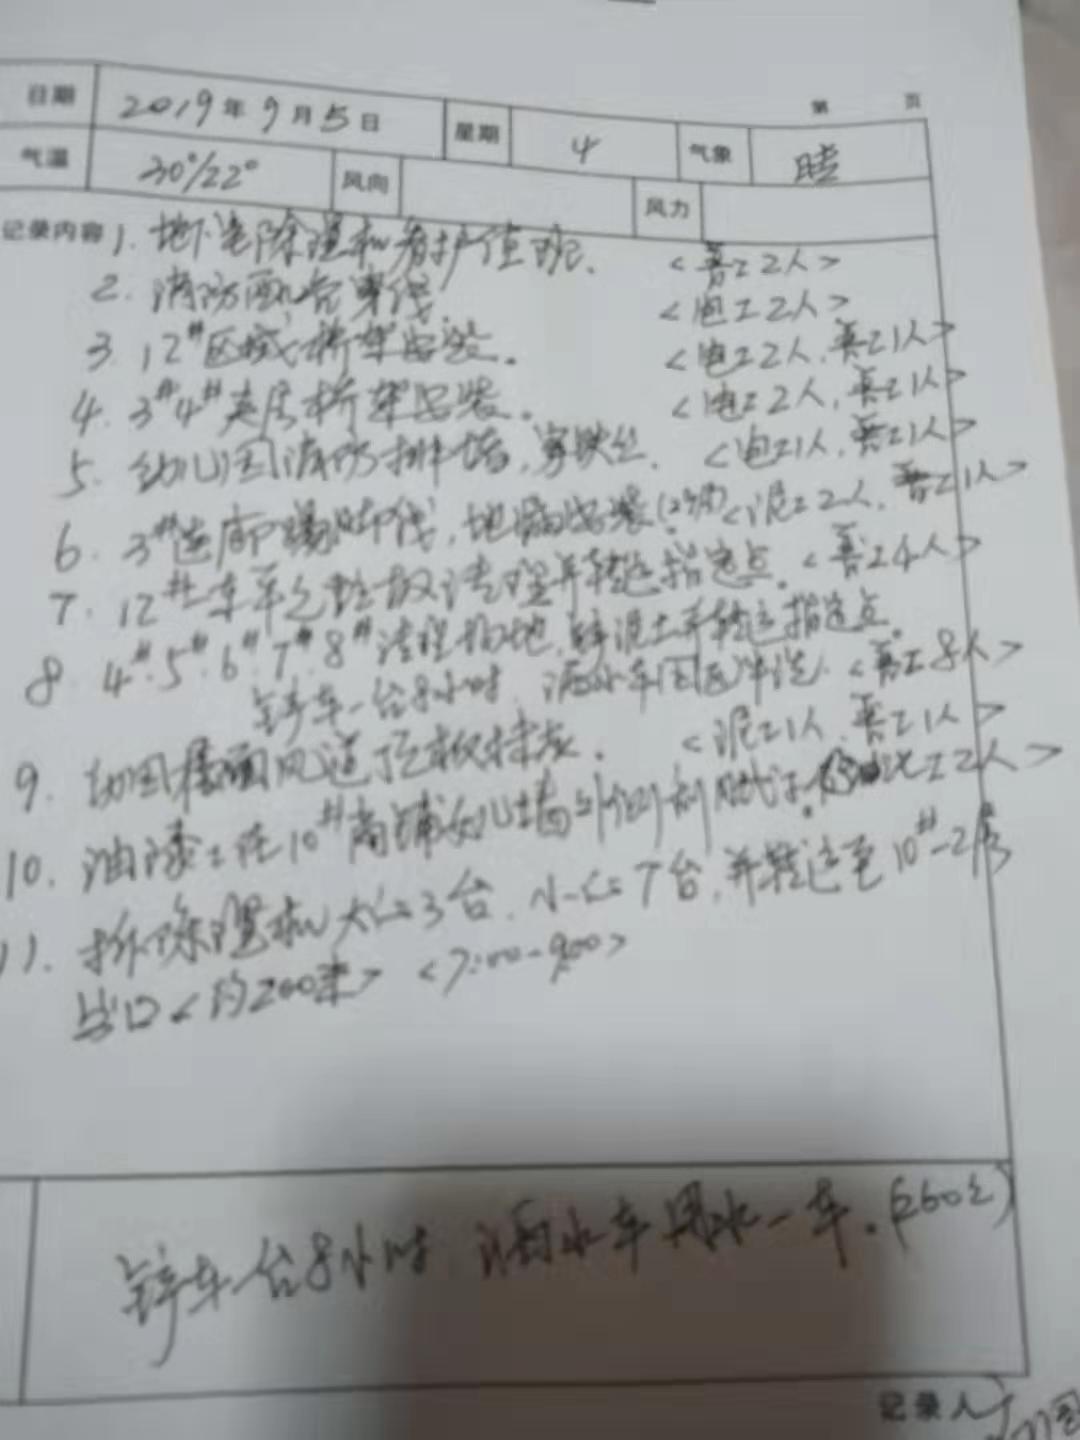 第 页
日期 2019年9月5日 星期 4 气象 晴
气温 30°/22° 风向 风力
记录内容 1. 地下室除湿机看护值班. <普工2人>
2. 消防配合穿线. <电工2人>
3. 12#区域桥架安装. <电工2人, 普工1人>
4. 3#4#夹层桥架安装. <电工2人, 普工1人>
5. 幼儿园消防排墙, 穿铁丝. <电工1人, 普工1人>
6. 3# 踢脚线, 地漏安装 <泥工2人, 普工1人>
7. 12# 垃圾清理并转运指定点. <普工4人>
8. 4#.5#.6#.7#.8#清理 地, 碎混土并转运指定点
铲车一台8小时 洒水车园区冲洗. <普工8人>
9. 幼园屋面风道顶板 . <泥工1人, 普工1人>
10. 油漆工在10#商铺 墙外侧刮腻子. 工2人>
11. 拆除湿机大仁3台, 小仁7台, 并转运至10#-2
出口<约200米> <7:00-9:00>
铲车一台8小时 洒水车用水一车.
记录人